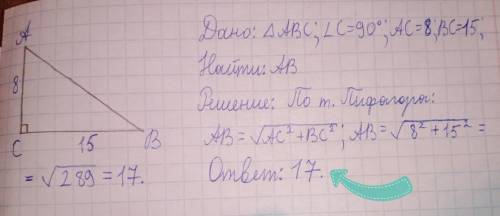 A
8
C
15
B
Дано: △ABC; ∠C=90°; AC=8; BC=15,
Найти: AB
Решение: По т. Пифагора:
AB=√AC²+BC²; AB=√8²+15² =
= √289 = 17.
Ответ: 17.